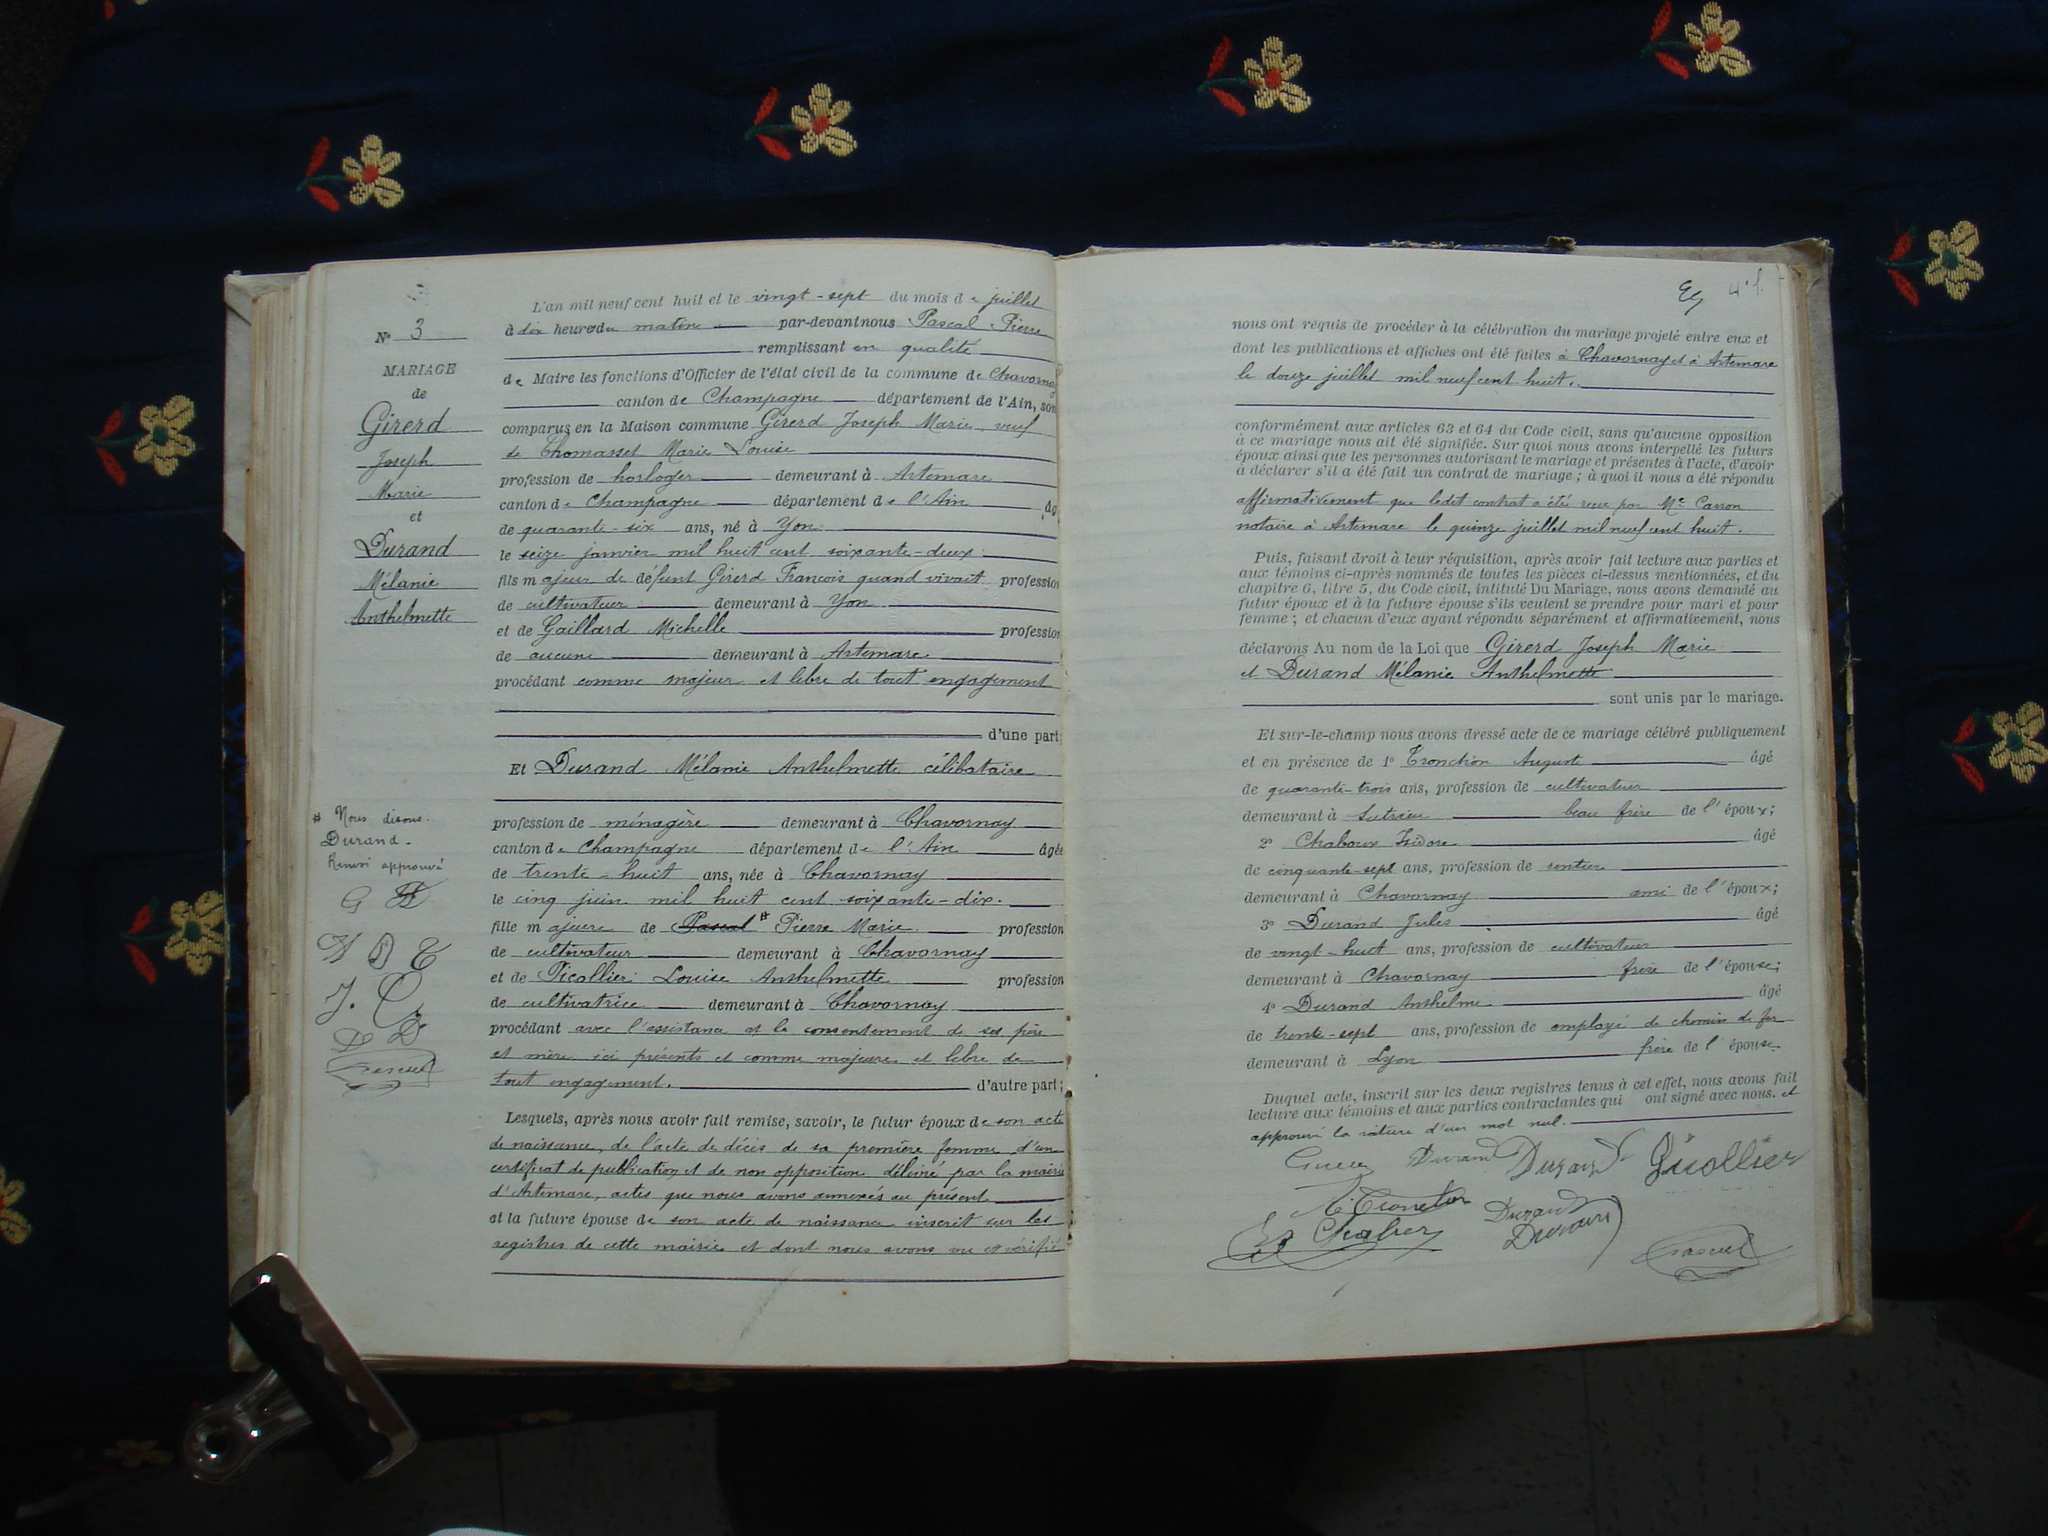 Nº 3
MARIAGE
de
Girerd
Joseph
Marie
et
Durand
Mélanie
Anthelmette
# Nous disons
Durand.
Renvoi approuvé
L'an mil neuf cent huit et le vingt-sept du mois de juillet
à dix heures du matin par-devant nous Pascal Pierre
remplissant en qualité
de Maire les fonctions d'Officier de l'état civil de la commune de Chavornay
canton de Champagne département de l'Ain, son
comparus en la Maison commune Girerd Joseph Marie, veuf
de Thomasset Marie Louise
profession de horloger demeurant à Artemare
canton de Champagne département de l'Ain âgé
de quarante-six ans, né à Yon
le seize janvier mil huit cent soixante-deux
fils majeur de défunt Girerd François quand vivait profession
de cultivateur demeurant à Yon
et de Gaillard Michelle profession
de aucune demeurant à Artemare
procédant comme majeur et libre de tout engagement
d'une part;
Et Durand Mélanie Anthelmette célibataire
profession de ménagère demeurant à Chavornay
canton de Champagne département de l'Ain âgée
de trente-huit ans, née à Chavornay
le cinq juin mil huit cent soixante-dix.
fille majeure de Pascal # Pierre Marie profession
de cultivateur demeurant à Chavornay
et de Picollier Louise Anthelmette profession
de cultivatrice demeurant à Chavornay
procédant avec l'assistance et le consentement de ses père
et mère ici présents et comme majeure et libre de
tout engagement. d'autre part;
Lesquels, après nous avoir fait remise, savoir, le futur époux de son acte
de naissance, de l'acte de décès de sa première femme d'un
certificat de publication et de non opposition délivré par la mairie
d'Artemare, actes que nous avons annexés au présent
et la future épouse de son acte de naissance inscrit sur les
registres de cette mairie et dont nous avons vu et vérifié
nous ont requis de procéder à la célébration du mariage projeté entre eux et
dont les publications et affiches ont été faites à Chavornay et à Artemare
le douze juillet mil neuf cent huit.
conformément aux articles 63 et 64 du Code civil, sans qu'aucune opposition
à ce mariage nous ait été signifiée. Sur quoi nous avons interpellé les futurs
époux ainsi que les personnes autorisant le mariage et présentes à l'acte, d'avoir
à déclarer s'il a été fait un contrat de mariage; à quoi il nous a été répondu
affirmativement que ledit contrat a été reçu par Me Carron
notaire à Artemare le quinze juillet mil neuf cent huit.
Puis, faisant droit à leur réquisition, après avoir fait lecture aux parties et
aux témoins ci-après nommés de toutes les pièces ci-dessus mentionnées, et du
chapitre 6, titre 5, du Code civil, intitulé Du Mariage, nous avons demandé au
futur époux et à la future épouse s'ils veulent se prendre pour mari et pour
femme; et chacun d'eux ayant répondu séparément et affirmativement, nous
déclarons Au nom de la Loi que Girerd Joseph Marie
et Durand Mélanie Anthelmette
sont unis par le mariage.
Et sur-le-champ nous avons dressé acte de ce mariage célébré publiquement
et en présence de 1º Tronchon Auguste âgé
de quarante-trois ans, profession de cultivateur
demeurant à Sutrieu beau frère de l'époux;
2º Chaboux Isidore âgé
de cinquante-sept ans, profession de rentier
demeurant à Chavornay ami de l'époux;
3º Durand Jules âgé
de vingt-huit ans, profession de cultivateur
demeurant à Chavornay frère de l'épouse;
4º Durand Anthelme âgé
de trente-sept ans, profession de employé de chemin de fer
demeurant à Lyon frère de l'épouse
Duquel acte, inscrit sur les deux registres tenus à cet effet, nous avons fait
lecture aux témoins et aux parties contractantes qui ont signé avec nous. et
approuvé la rature d'un mot nul.
Durand
Durand
Durand